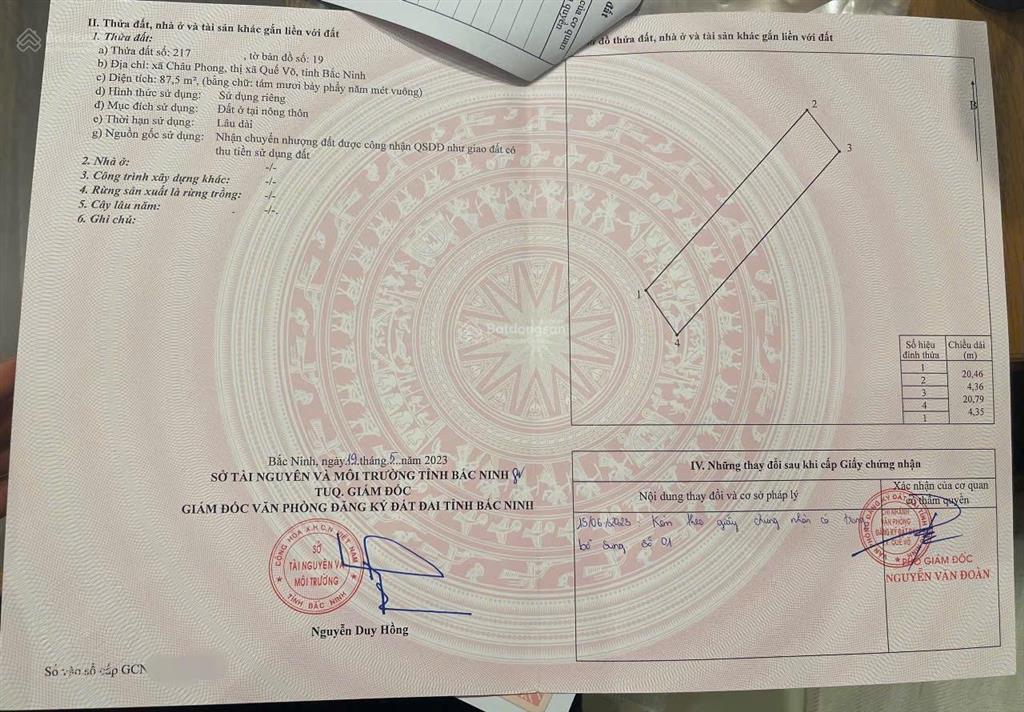 II. Thửa đất, nhà ở và tài sản khác gắn liền với đất
1. Thửa đất:
a) Thửa đất số: 217 , tờ bản đồ số: 19
b) Địa chỉ: xã Châu Phong, thị xã Quế Võ, tỉnh Bắc Ninh
c) Diện tích: 87,5 m², (bằng chữ: tám mươi bảy phẩy năm mét vuông)
d) Hình thức sử dụng: Sử dụng riêng
đ) Mục đích sử dụng: Đất ở tại nông thôn
e) Thời hạn sử dụng: Lâu dài
g) Nguồn gốc sử dụng: Nhận chuyển nhượng đất được công nhận QSDĐ như giao đất có
thu tiền sử dụng đất
2. Nhà ở: -/-
3. Công trình xây dựng khác: -/-
4. Rừng sản xuất là rừng trồng: -/-
5. Cây lâu năm: -/-.
6. Ghi chú:
Bắc Ninh, ngày 19 tháng 5 năm 2023
SỞ TÀI NGUYÊN VÀ MÔI TRƯỜNG TỈNH BẮC NINH
TUQ. GIÁM ĐỐC
GIÁM ĐỐC VĂN PHÒNG ĐĂNG KÝ ĐẤT ĐAI TỈNH BẮC NINH
CỘNG HÒA X.H.C.N VIỆT NAM
SỞ
TÀI NGUYÊN VÀ
MÔI TRƯỜNG
TỈNH BẮC NINH
Nguyễn Duy Hồng
Số vào sổ cấp GCN
của cơ quan
quyền
đất
cơ quan
quyền
đồ thửa đất, nhà ở và tài sản khác gắn liền với đất
B
2
3
1
4
Số hiệu đỉnh thửa Chiều dài (m)
1
20,46
2
4,36
3
20,79
4
4,35
1
IV. Những thay đổi sau khi cấp Giấy chứng nhận
Nội dung thay đổi và cơ sở pháp lý
Xác nhận của cơ quan
có thẩm quyền
15/06/2023 : Kèm theo giấy chứng nhận có trang
bổ sung số 01
CHI NHÁNH
VĂN PHÒNG
ĐĂNG KÝ ĐẤT
QUẾ VÕ
PHÓ GIÁM ĐỐC
NGUYỄN VĂN ĐOÀN
Batdongsan